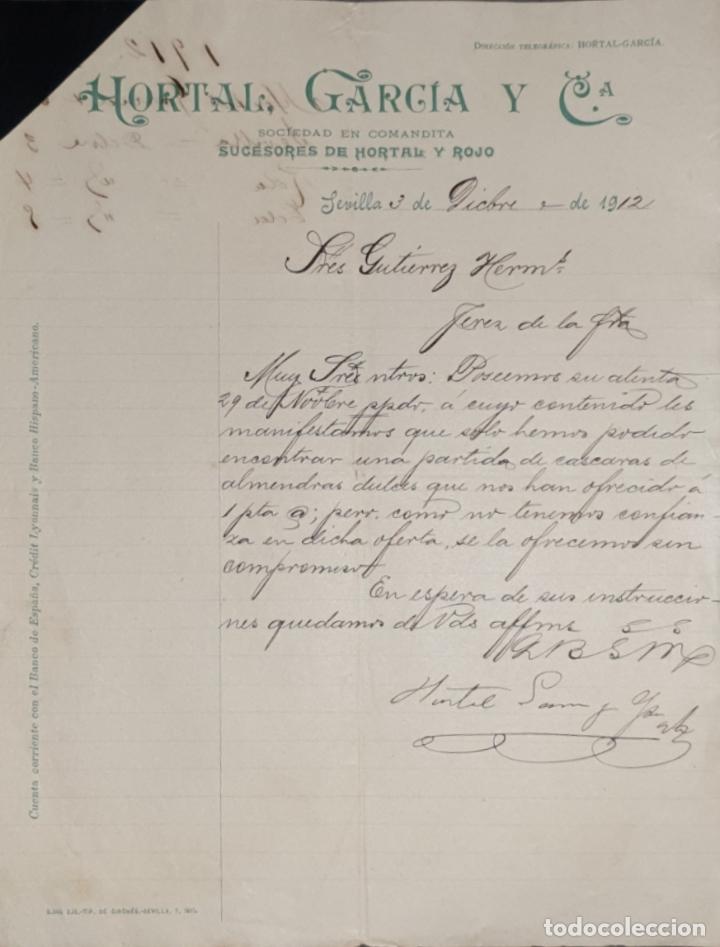 DIRECCIÓN TELEGRÁFICA: HORTAL-GARCÍA.
HORTAL, GARCÍA Y C.A
SOCIEDAD EN COMANDITA
SUCESORES DE HORTAL Y ROJO
Sevilla 3 de Dicbre de 1912
Sres Gutiérrez Hermos
Jerez de la Fra
Muy Sres ntros: Poseemos su atenta
29 de Novbre ppdo, á cuyo contenido les
manifestamos que solo hemos podido
encontrar una partida de cascaras de
almendras dulces que nos han ofrecido á
1 pta @; pero como no tenemos confian-
za en dicha oferta, se la ofrecemos sin
compromiso.
En espera de sus instruccio-
nes quedamos de Vds affmos S S
Q B S M
Hortal
Cuenta corriente con el Banco de España, Crédit Lyonnais y Banco Hispano-Americano.
1912
todocoleccion.net